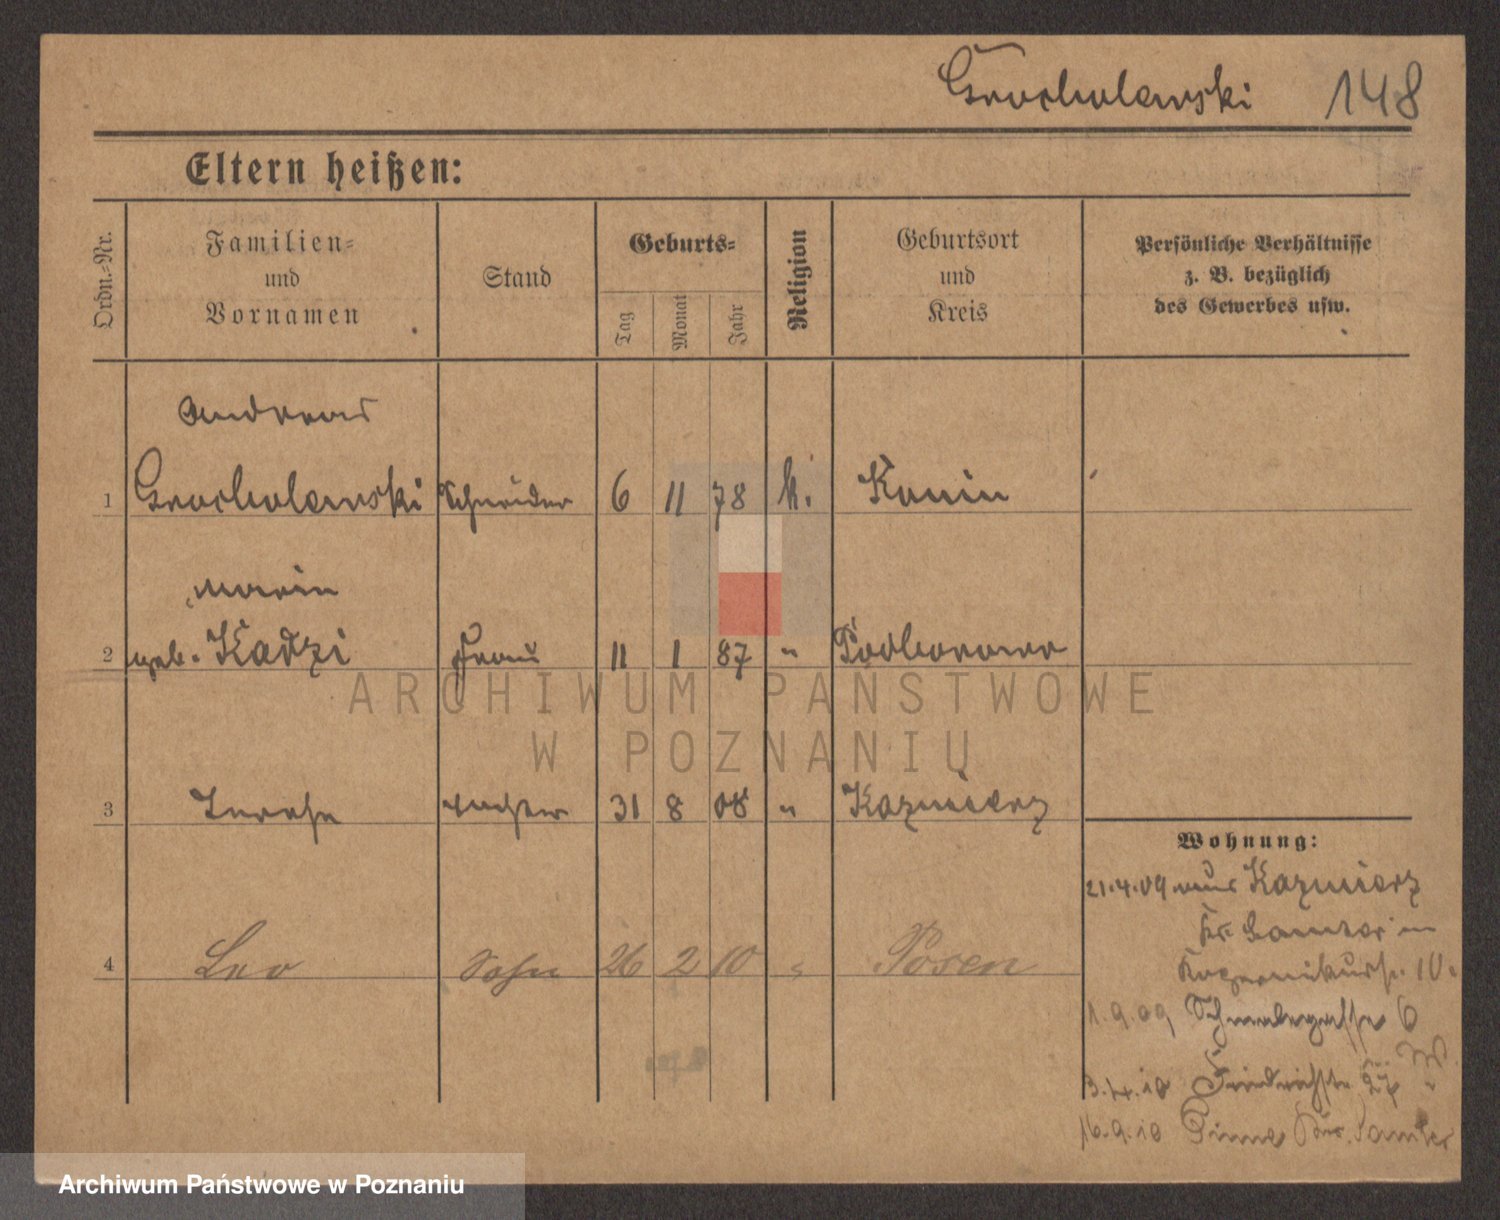 Grocholewski 148
Eltern heißen:
Ordn.-Nr.
Familien-
und
Vornamen
Stand
Geburts-
Tag
Monat
Jahr
Religion
Geburtsort
und
Kreis
Persönliche Verhältnisse
z. B. bezüglich
des Gewerbes usw.
Andreas
1 Grocholewski Schneider 6 11 78 k. Konin
Marie
2 geb. Kadzi Frau 11 1 87 " Podborowo
3 Tochter 31 8 08 " Kazmierz
4 Leo Sohn 26 2 10 " Posen
Wohnung:
21.4.09 aus Kazmierz
Kr. Samter in
10.
1.9.09 6
3.4.10 Friedrichstr. 27
16.9.10 Pinne Kr. Samter
ARCHIWUM PAŃSTWOWE
W POZNANIU
Archiwum Państwowe w Poznaniu